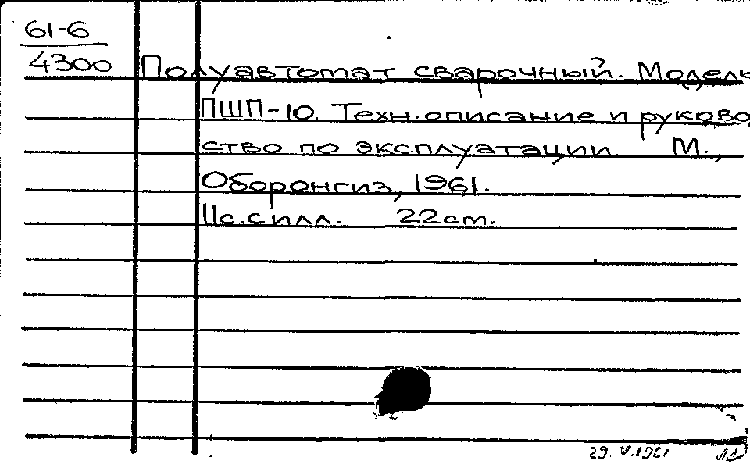 61-6
4300 Полуавтомат сварочный. Модель
ПШП-10. Техн. описание и руковод
ство по эксплуатации М.,
Оборонгиз, 1961.
11с. с илл. 22 см.
29.V.1961